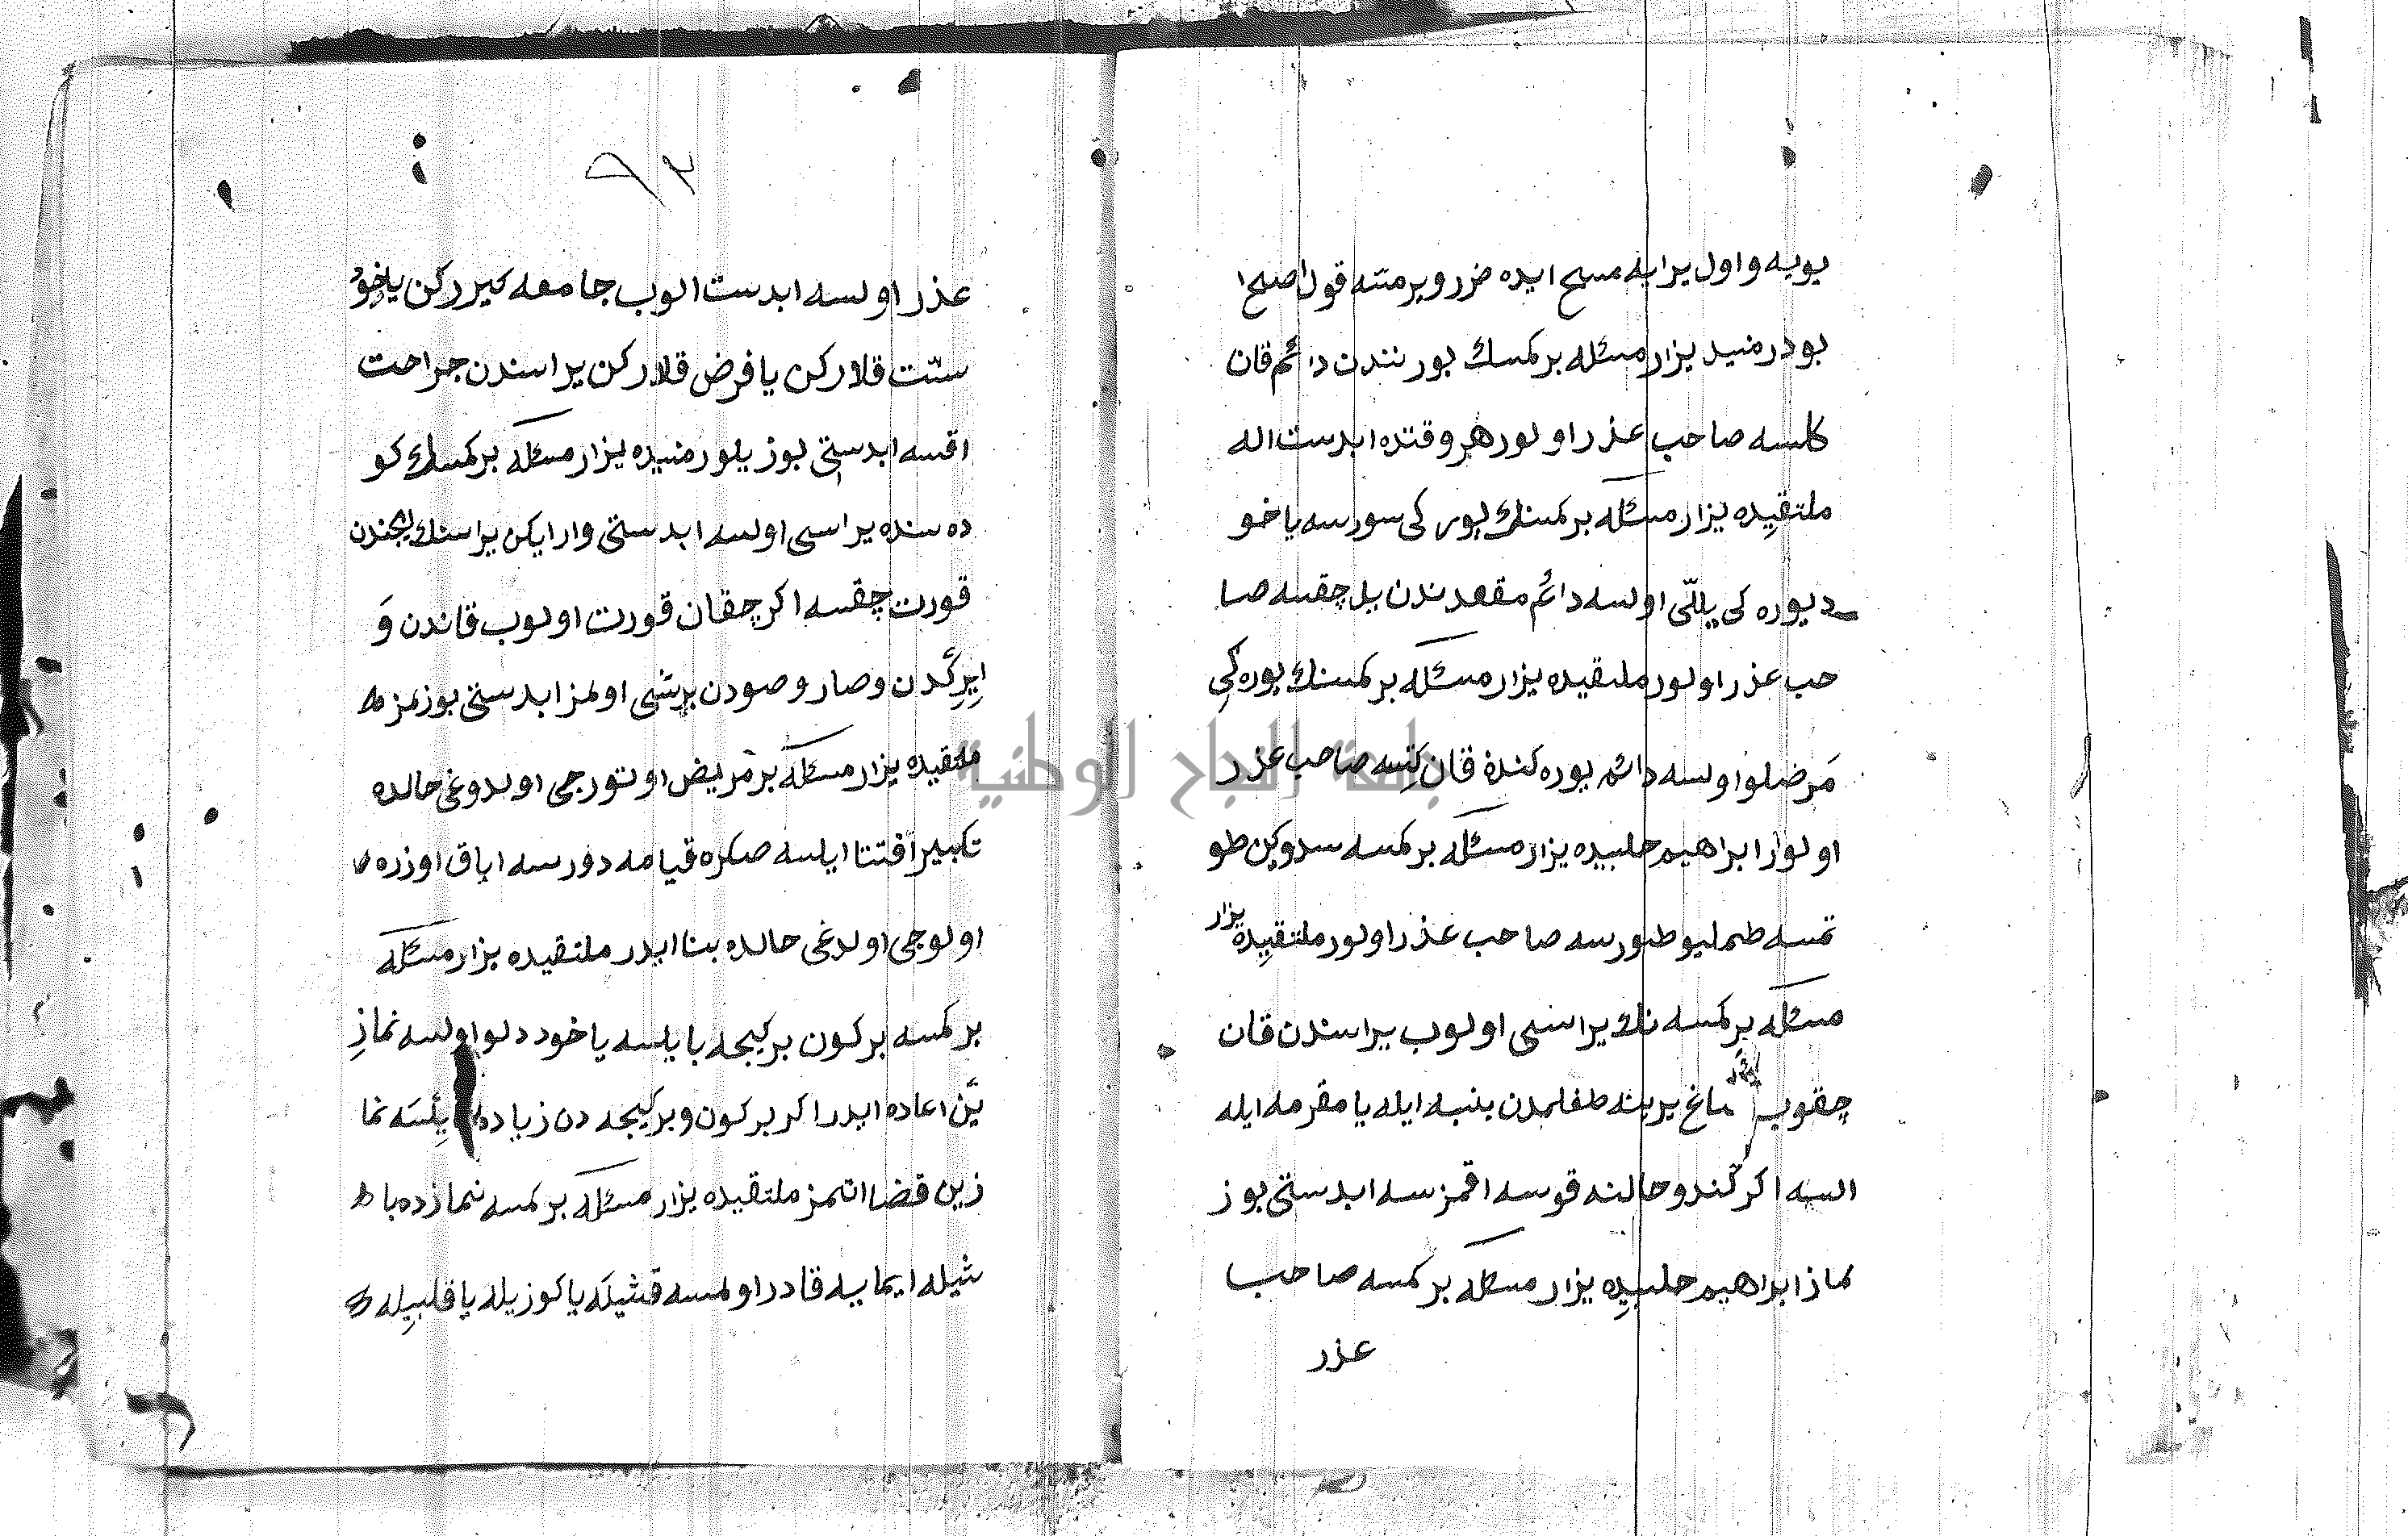 يويه و اول يرايله مسح ايده ضرر ويرمسه قول اصح
بودر منيه يزار مسئله بر كمسنك بورنندن دائم قان
كلسه صاحب عذر اولور هر وقتده ابدست اله
ملتقيده يزار مسئله بر كمسنك يوره كى سورسه ياخو
ديوره كى يللّى اولسه دائم مقعدندن يل چقسه صا
حب عذر اولور ملتقيده يزار مسئله بر كمسنك يوره كى
مَرضلو اولسه دائم يوره كنده قان كتسه صاحب عذر
اولور ابراهيم حلبيده يزار مسئله بر كمسه سدوكن طو
تمسه طملیو طورسه صاحب عذر اولور ملتقيده يزار
مسئله بر كمسه نك يراسى اولوب يراسندن قان
چقوب صاغ يرينه طغلمدن بنبه ايله يا مقرمه ايله
السه اكر كندو حالنه قوسه اقمزسه ابدستى بوز
نماز ابراهيم حلبيده يزار مسئله بر كمسه صاحب
عذر
٩٢
عذر اولسه ابدست الوب جامعه كيرركن ياخو
سنّت قلاركن يا فرض قلاركن يراسندن جراحت
اقسه ابدستى بوزيلور منيده يزار مسئله بر كمسنك كو
ده سنده يراسى اولسه ابدستى وار ايكن يراسنك ايچندن
قورت چقسه اكر چقان قورت اولوب قاندن وَ
ايرِكَدن و صارو صودن برشى اولمز ابدستى بوزلمز
ملتقيده يزار مسئله بر مريض اوتورجى اولدوغى حالده
تكبير افتتا ايلسه صكره قيامه دورسه اياق اوزره
اولوجى اولدغى حالده بنا ايدر ملتقيده يزار مسئله
بر كمسه بر كون بر كيجه بايلسه ياخود دلو اولسه نمازِ
ينَ اعاده ايدر اكر بر كون و بر كيجه دن زياده بايلسَه نما
زين قضا اتمز ملتقيده يزار مسئله بر كمسه نمازده با
شيله ايمايه قادر اولمسه قشيله يا كوزيله يا قلبيله
جامعة النجاح الوطنية